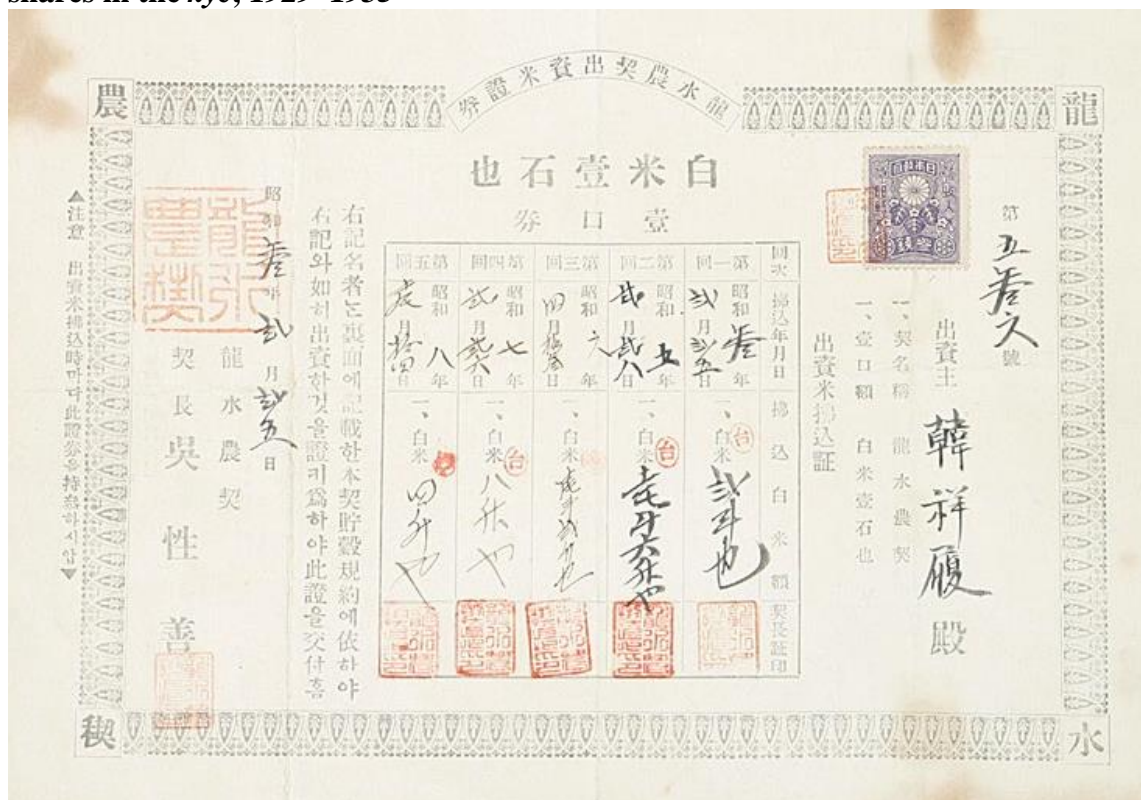 shares in the kye, 1929–1933
龍
水
農
稧
龍水農契出資米證券
白米壹石也
壹口券
第 號
出資主 韓祥履 殿
一、契名稱 龍水農契
一、壹口額 白米壹石也
出資米拂込証
回次 拂込年月日 拂込白米額 契長証印
第一回 昭和叄年弍月弍五日 一、白米弍斗也
第二回 昭和五年弍月弍八日 一、白米壱斗六升也
第三回 昭和六年四月 日 一、白米
第四回 昭和七年弍月 日 一、白米八升也
第五回 昭和八年 月拾四日 一、白米四升也
右記名者는裏面에記載한本契貯穀規約에依하야
右記와如히出資한것을證키爲하야此證을交付홈
昭和叄年弍月弍五日
龍水農契
契長 吳性善
▲注意 出資米拂込時마다此證券을持參하시압▼